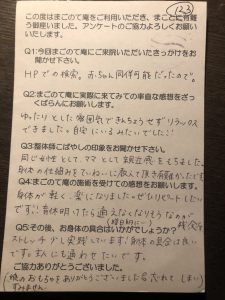 123
この度はまごのて庵をご利用いただき、まことに有難
う御座いました。アンケートのご協力よろしくお願い
いたします。
Q1:今回まごのて庵にご来院いただいたきっかけをお
聞かせ下さい。
HPでの検索。赤ちゃん同伴可能だったので。
Q2:まごのて庵に実際に来てみての率直な感想をざっ
くばらんにお願いします。
ゆったりとした雰囲気できんちょうせずリラックス
できました。自宅にいるみたいでした!!
Q3:整体師こばやしの印象をお聞かせ下さい。
同じ女性として、ママとして親近感をもちました。
身体の仕組みをていねいに教えて頂き有難いです。
Q4:まごのて庵の施術を受けての感想をお願いします。
身体が軽く、楽になりました。ぜひリピートしたい
です!!育休明けてたら通えなくなりそうなのが
残念
Q5:その後、お身体の具合はいかがでしょうか?
ストレッチ少し実践しています!身体の具合は良い
です。また通わせたいです。
ご協力ありがとうございました。
娘のおもちゃをありがとうございました。忘れてしまい
すみません